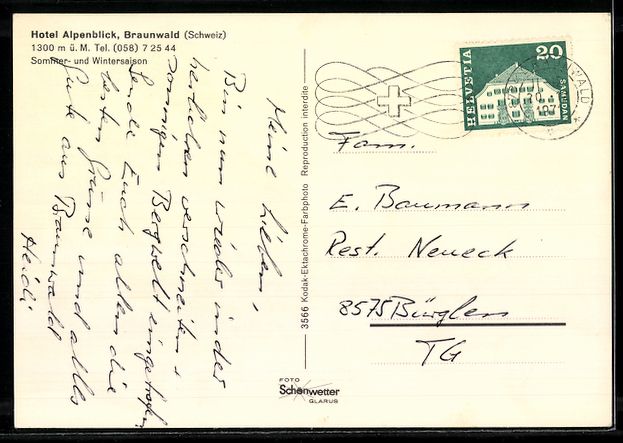 Hotel Alpenblick, Braunwald (Schweiz)
1300 m ü. M. Tel. (058) 7 25 44
Sommer- und Wintersaison
Meine Lieben,
Bin nun wieder in der
herrlichen verschneiten &
sonnigen Bergwelt eingetroffen
Sende Euch allen die
besten Grüsse und alles
Gute aus Braunwald
Heidi
3566 Kodak-Ektachrome-Farbphoto Reproduction interdite
HELVETIA
20
SAMEDAN
WALD
Fam.
E. Baumann
Rest. Neueck
8575 Bürglen
TG
FOTO
Schönwetter
GLARUS